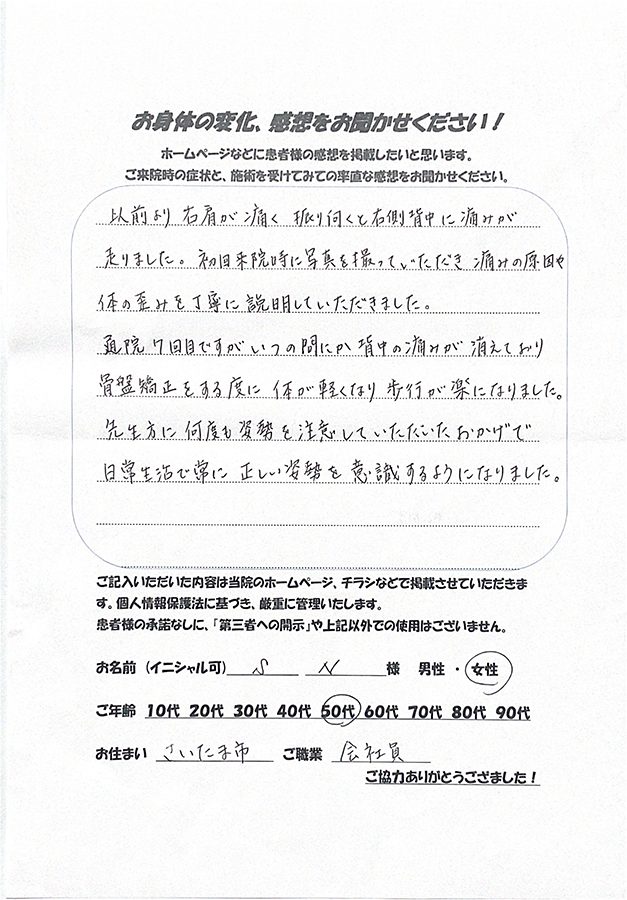 お身体の変化、感想をお聞かせください！
ホームページなどに患者様の感想を掲載したいと思います。
ご来院時の症状と、施術を受けてみての率直な感想をお聞かせください。
以前より 右肩が痛く 振り向くと右側背中に痛みが
走りました。初回来院時に写真を撮っていただき 痛みの原因や
体の歪みを丁寧に説明していただきました。
通院7回目ですがいつの間にか 背中の痛みが消えており
骨盤矯正をする度に 体が軽くなり 歩行が楽になりました。
先生方に何度も姿勢を注意していただいたおかげで
日常生活で常に 正しい姿勢を意識するようになりました。
ご記入いただいた内容は当院のホームページ、チラシなどで掲載させていただきま
す。個人情報保護法に基づき、厳重に管理いたします。
患者様の承諾なしに、「第三者への開示」や上記以外での使用はございません。
お名前（イニシャル可） S N 様 男性・女性
ご年齢 10代 20代 30代 40代 50代 60代 70代 80代 90代
お住まい さいたま市 ご職業 会社員
ご協力ありがとうござました！